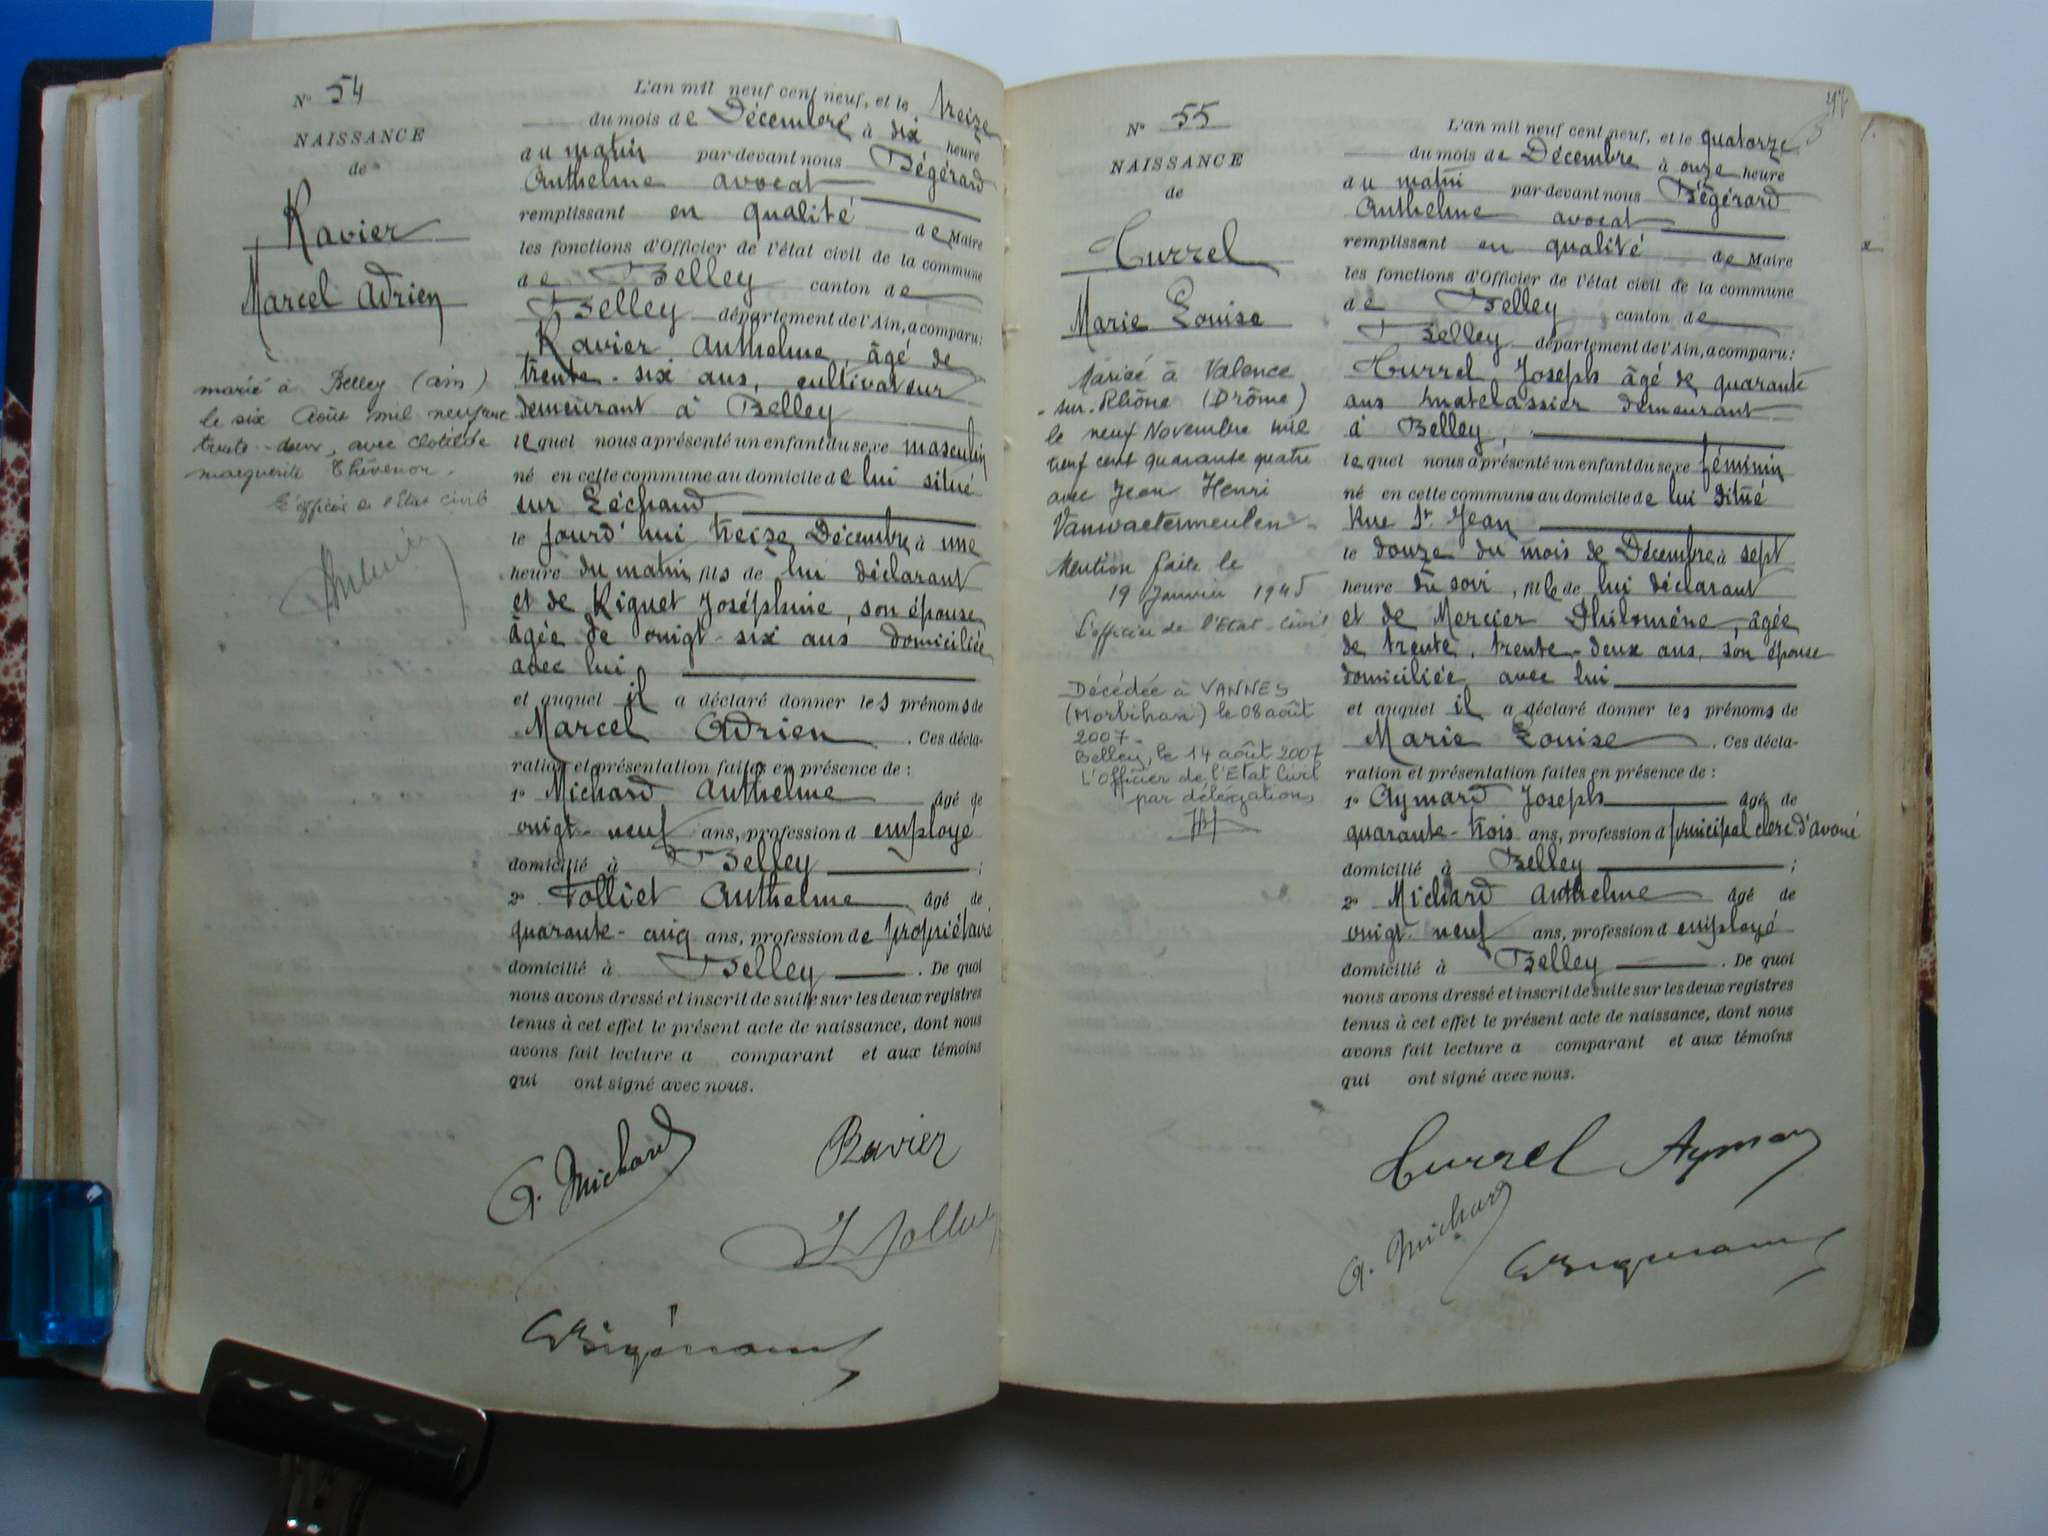 N° 54
NAISSANCE
de
Ravier
Marcel Adrien
marié à Belley (ain)
le six Août mil neuf cent
trente-deux, avec Clotilde
Marguerite Thévenon.
L'officier de l'Etat Civil
L'an mil neuf cent neuf, et le treize
du mois de Décembre à dix heure
du matin par-devant nous Bégérard
Anthelme avocat
remplissant en qualité de Maire
les fonctions d'Officier de l'état civil de la commune
de Belley canton de
Belley département de l'Ain, a comparu:
Ravier Anthelme, âgé de
trente-six ans, cultivateur
demeurant à Belley
lequel nous a présenté un enfant du sexe masculin
né en cette commune au domicile de lui situé
sur Léchaud
le jourd'hui treize Décembre à une
heure du matin, fils de lui déclarant
et de Riguet Joséphine, son épouse
âgée de vingt-six ans domiciliée
avec lui
et auquel il a déclaré donner les prénoms de
Marcel Adrien. Ces décla-
ration et présentation faites en présence de :
1° Michard Anthelme âgé de
vingt-neuf ans, profession d employé
domicilié à Belley ;
2° Folliet Anthelme âgé de
quarante-cinq ans, profession de propriétaire
domicilié à Belley. De quoi
nous avons dressé et inscrit de suite sur les deux registres
tenus à cet effet le présent acte de naissance, dont nous
avons fait lecture a comparant et aux témoins
qui ont signé avec nous.
A. Michard Ravier
N° 55
NAISSANCE
de
Currel
Marie Louise
Mariée à Valence
-sur-Rhône (Drôme)
le neuf Novembre mil
neuf cent quarante quatre
avec Jean Henri
Vanwaetermeulen.
Mention faite le
19 Janvier 1945
L'officier de l'Etat-Civil
Décédée à VANNES
(Morbihan) le 08 août
2007.
Belley, le 14 août 2007
L'Officier de l'Etat Civil
par délégation,
L'an mil neuf cent neuf, et le quatorze
du mois de Décembre à onze heure
du matin par-devant nous Bégérard
Anthelme avocat
remplissant en qualité de Maire
les fonctions d'Officier de l'état civil de la commune
de Belley canton de
Belley département de l'Ain, a comparu:
Currel Joseph âgé de quarante
ans matelassier demeurant
à Belley,
lequel nous a présenté un enfant du sexe féminin
né en cette commune au domicile de lui situé
Rue St Jean
le douze du mois de Décembre à sept
heure du soir, fille de lui déclarant
et de Mercier Philomène, âgée
de trente, trente-deux ans, son épouse
domiciliée avec lui
et auquel il a déclaré donner les prénoms de
Marie Louise. Ces décla-
ration et présentation faites en présence de :
1° Aymard Joseph âgé de
quarante-trois ans, profession d principal clerc d'avoué
domicilié à Belley ;
2° Michard Anthelme âgé de
vingt-neuf ans, profession d employé
domicilié à Belley. De quoi
nous avons dressé et inscrit de suite sur les deux registres
tenus à cet effet le présent acte de naissance, dont nous
avons fait lecture a comparant et aux témoins
qui ont signé avec nous.
Currel Aymard
A. Michard